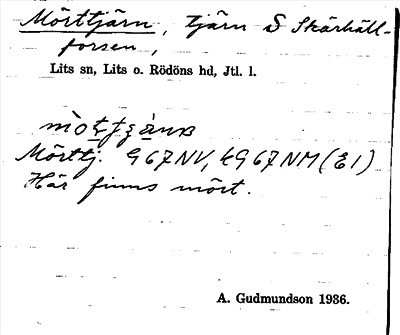 Mörttjärn, tjärn S Skärhäll-
forsen,
Lits sn, Lits o. Rödöns hd, Jtl. l.
Mörttj. G 67 NV, kG 67 NM (E1)
Här finns mört.
A. Gudmundson 1936.